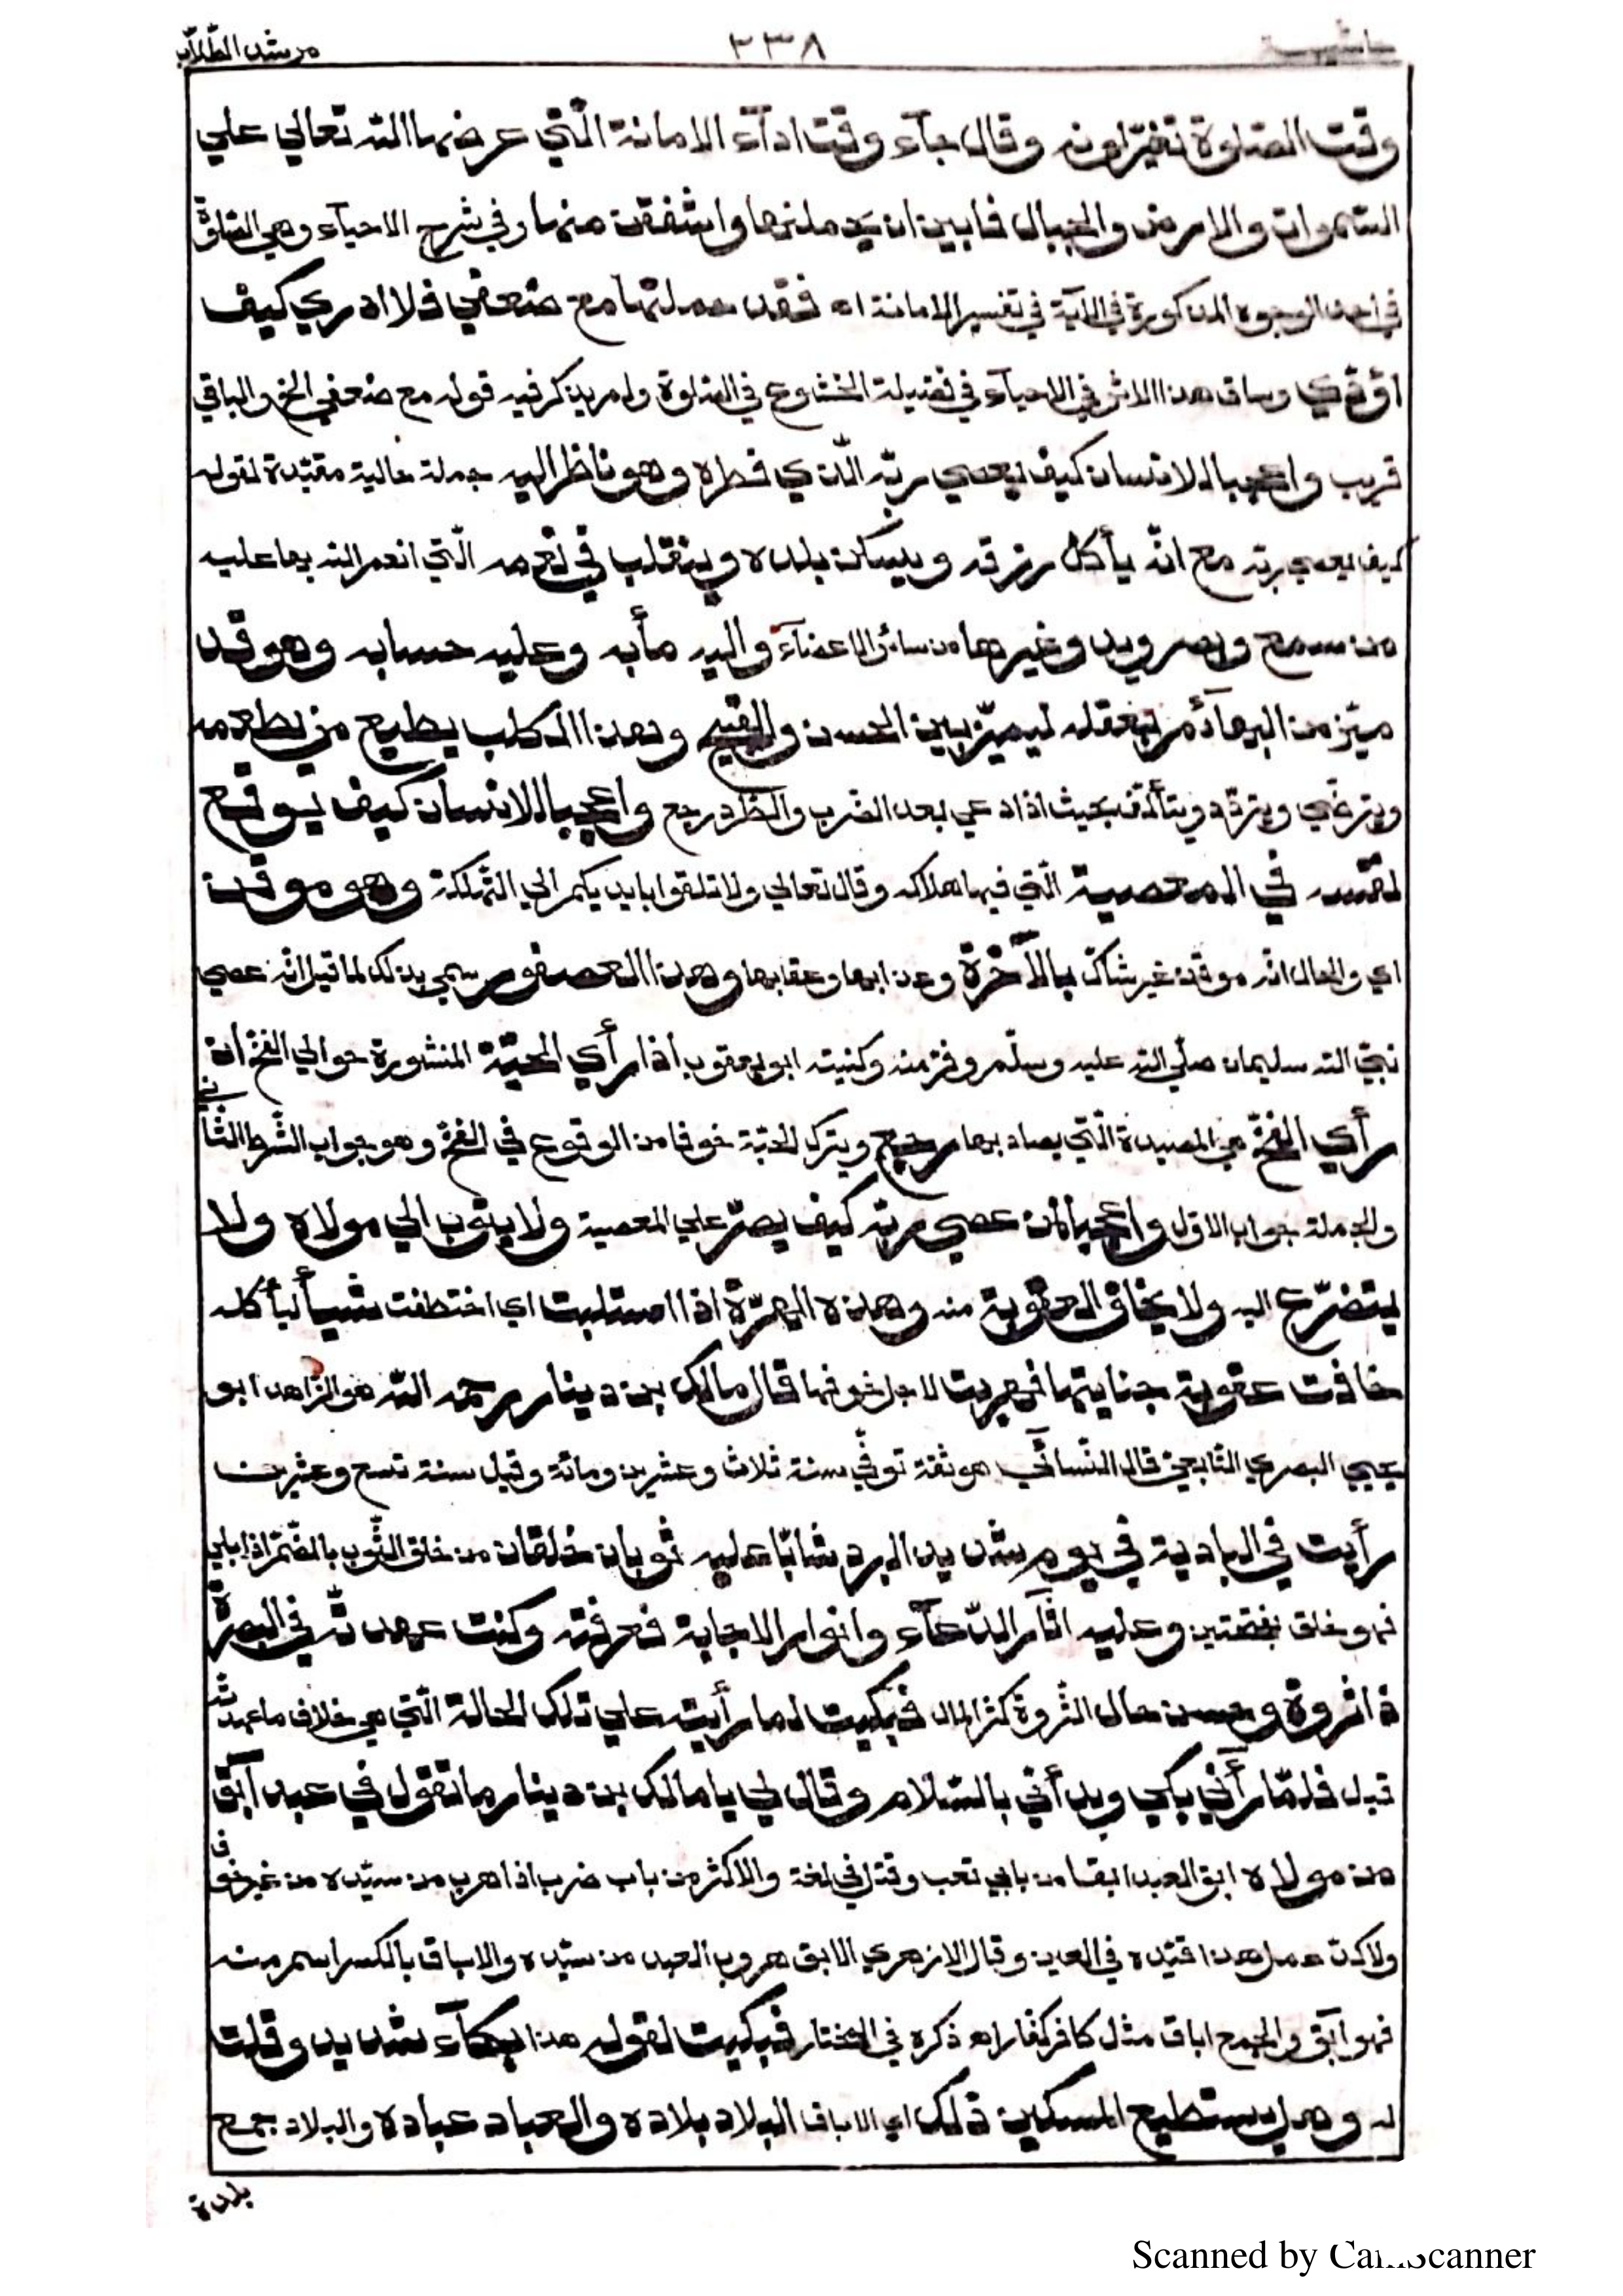 حاشية ٢٣٨ مرشد الطّلّاب
وقت الصّلوة تغيّر لونه وقال جآء وقت ادآء الامانة الّتي عرضها الله تعالي علي
السّموات والارض والجبال فابين ان يحملنها واشفقن منها وفي شرح الاحيآء وهي الصّلوة
في احد الوجوه المذكورة في الآية في تفسير الامانة اه فقد حملتها مع ضعفي فلا ادري كيف
اؤدّي وساق هذا الاثر في الاحيآء في فضيلة الخشوع في الصّلوة ولم يذكر فيه قوله مع ضعفي الخ والباقي
قريب واعجبا للانسان كيف يعصي ربّه الّذي فطره وهو ناظر اليه جملة حالية مقيّدة لقوله
كيف يعصي ربّه مع انّه يأكل رزقه ويسكن بلده ويتقلب في نعمه الّتي انعم الله بها عليه
من سمع وبصر ويد وغيرها من سائر الاعضآء واليه مأبه وعليه حسابه وهو قد
ميّز من البهآئم بعقله ليميّز بين الحسن والقبيح وهذا الكلب يطيع من يطعمه
ويترضّي ويتودّد ويتألّف بحيث اذا دعي بعد الضرب والطّرد رجع واعجبا للانسان كيف يوقع
نفسه في المعصية الّتي فيها هلاكه وقال تعالي ولا تلقوا بايديكم الي التّهلكة وهو موقن
اي والحال انّه موقن غير شاكّ بالآخرة وعذابها وعقابها وهذا العصفور سمي بذلك لما قيل انّه عصي
نبيّ الله سليمان صلّي الله عليه وسلّم وفرّ منه وكنيته ابو يعقوب اذا رأي الحبّة المنشورة حوالي الفخّ ان
رأي الفخّ هي المصيدة الّتي يصاد بها رجع ويترك الحبّة خوفا من الوقوع في الفخّ وهو جواب الشّرط الثّاني
والجملة جواب الاوّل واعجبا لمن عصي ربّه كيف يصرّ علي المعصية ولا يتوب الي مولاه ولا
يتضرّع اليه ولا يخاف العقوبة منه وهذه الهرّة اذا استلبت اي اختطفت شيأ لتأكله
خافت عقوبة جنايتها فهربت لاجل خوفها قال مالك بن دينار رحمه الله هو الزّاهد ابو
يحيي البصري التّابعيّ قال النّسآئي هو ثقة توفّي سنة ثلاث وعشرين ومائة وقيل سنة تسع وعشرين
رأيت في البادية في يوم شديد البرد شابّا عليه ثوبان خلقان من خلق الثّوب بالضّمّ اذا بلي
فهو خلق بفتحتين وعليه اثآر الدّعآء وانوار الاجابة فعرفته وكنت عهدتّه في البصرة
ذا ثروة وحسن حال الثّروة كثر المال فبكيت لما رأيته علي تلك الحالة الّتي هي خلاف ما عهدتّه
قبل فلمّا رأني بكي وبدأني بالسّلام وقال لي يا مالك بن دينار ما تقول في عبد آبق
من مولاه ابق العبد ابقا من بابي تعب وقتل في لغة والاكثر من باب ضرب اذا هرب من سيّده من غير خوف
ولا كدّ عمل هذا قيّده في العين وقال الازهري الابق هروب العبد من سيّده والاباق بالكسر اسم منه
فهو آبق والجمع اباق مثل كافر كفّار اه ذكره في المختار فبكيت لقوله هذا بكآء شديد وقلت
له وهل يستطيع المسكين ذلك اي الاباق البلاد بلاده والعباد عباده والبلاد جمع
بلدة
Scanned by CamScanner